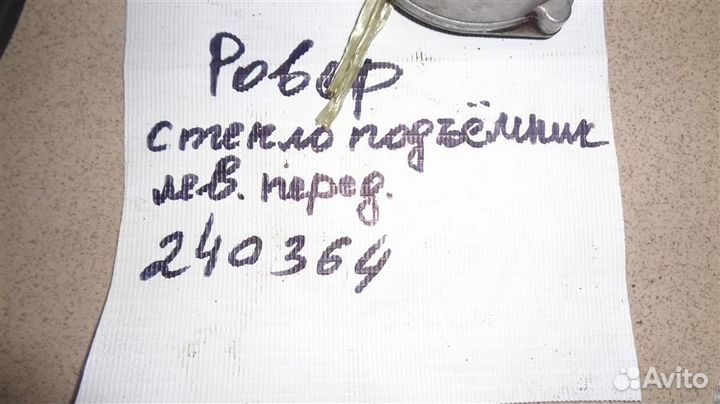 Ровер
стеклоподъёмник
лев. перед.
240364
Avito